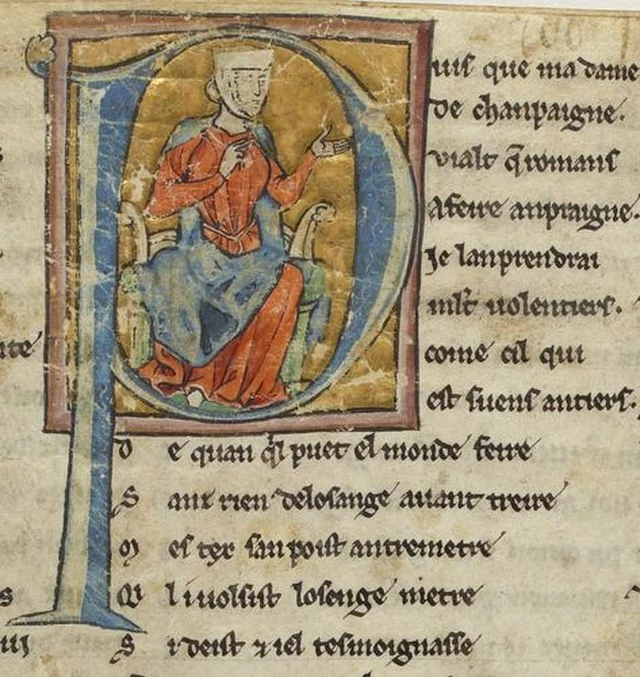 Puis que ma dame
de chanpaigne.
vialt q̃ romans
a feire anpraigne.
Je lanprendrai
ml̃t uolentiers.
come cil qui
est suens antiers.
de quan q̃l puet el monde feire
Sanz rien delosange auant treire
Mes tex san poist antremetre
Qui i uolsist losenge metre
Si deist ⁊ iel tesmoignasse